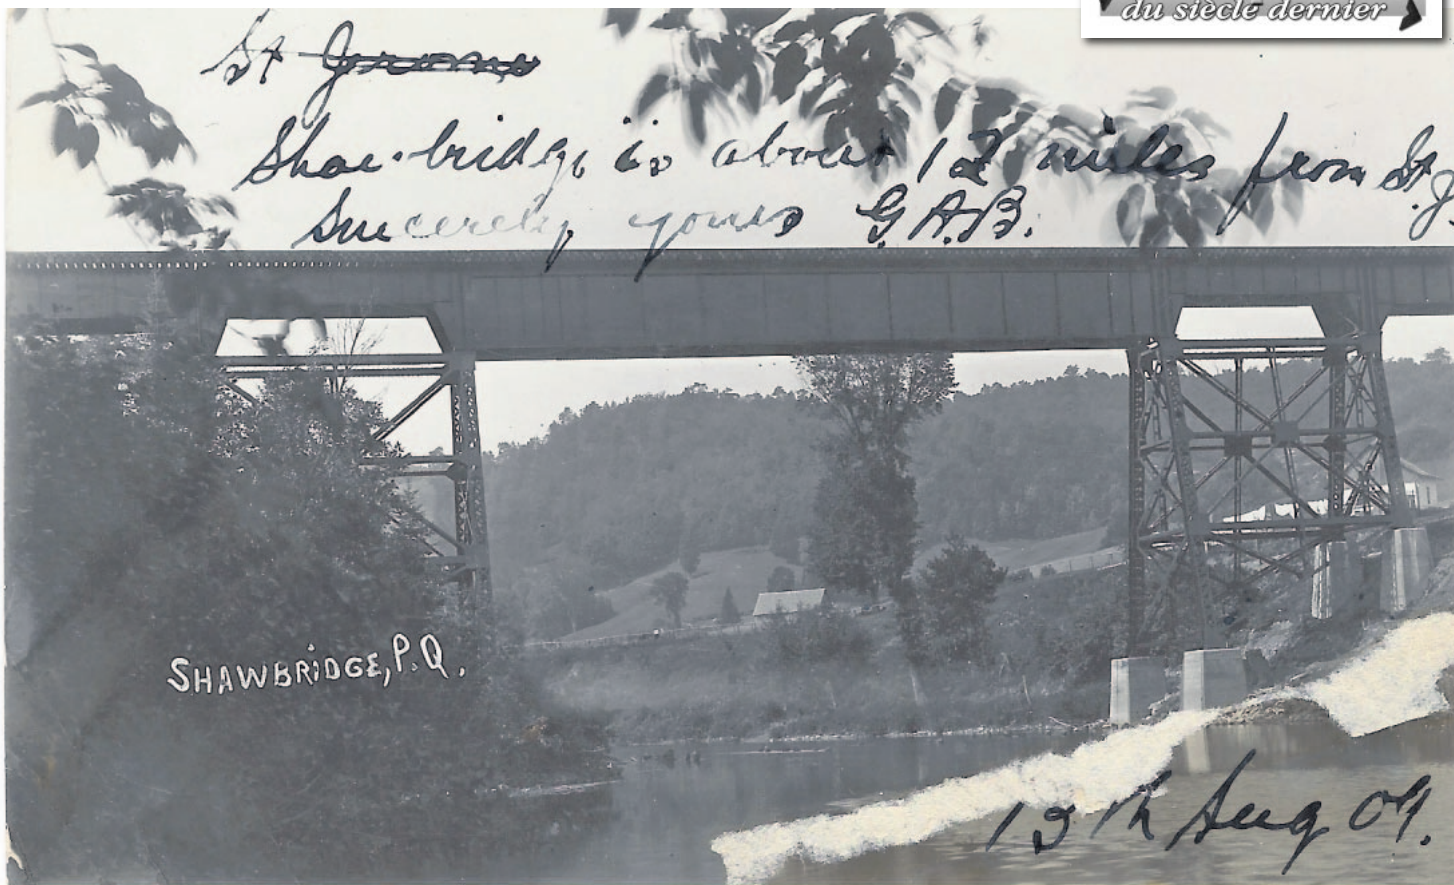 du siècle dernier
St Jerome
Shaw-bridge is about 12 miles from St. J
Sincerely yours G.A.B.
SHAWBRIDGE, P.Q.
13th Aug 09.